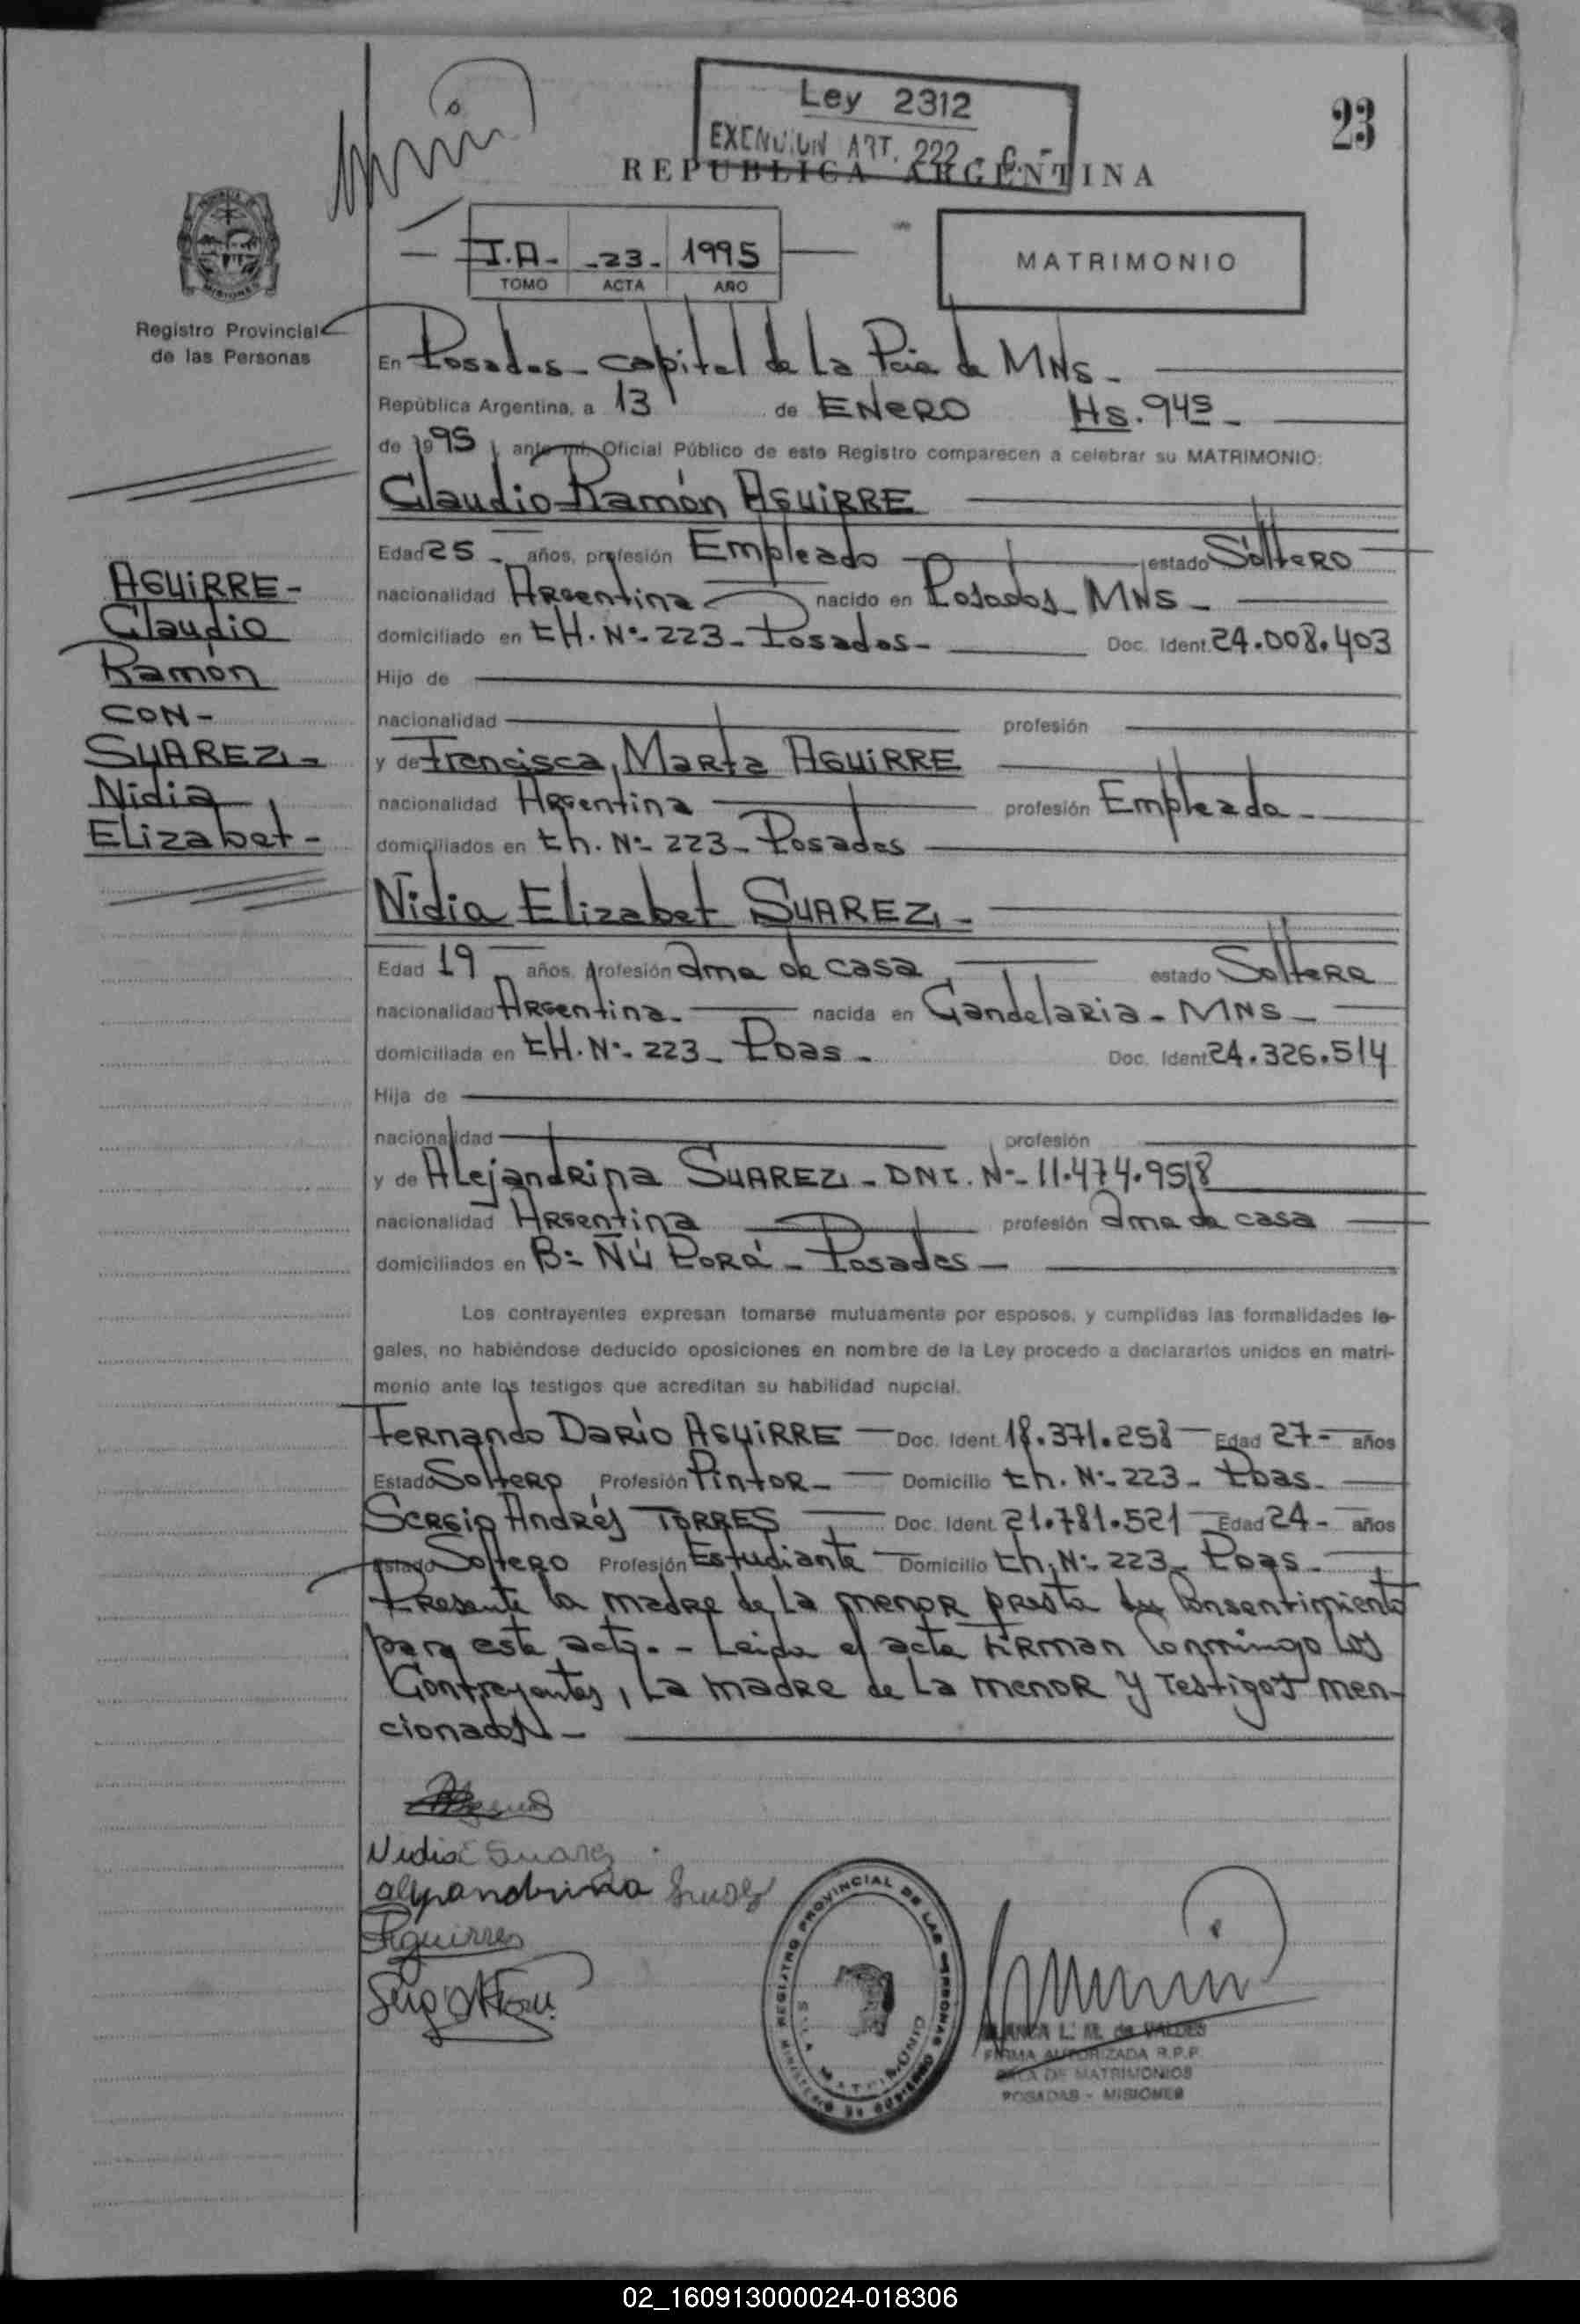 Ley 2312
EXENCION ART. 222 - C -
23
REPUBLICA ARGENTINA
T.A- -23- 1995
TOMO ACTA AÑO
MATRIMONIO
Registro Provincial
de las Personas
En Posadas - capital de La Pcia de MNS -
República Argentina, a 13 de ENERO Hs. 945 -
de 1995, ante mi, Oficial Público de este Registro comparecen a celebrar su MATRIMONIO:
Claudio Ramón AGUIRRE
Edad 25 - años, profesión Empleado estado Soltero
nacionalidad Argentina nacido en Posadas - MNS -
domiciliado en CH. Nº- 223 - Posadas - Doc. Ident. 24.008.403
Hijo de
nacionalidad profesión
y de Francisca, Marta AGUIRRE
nacionalidad Argentina profesión Empleada -
domiciliados en Ch. Nº- 223 - Posadas
Nidia Elizabet SUAREZ -
Edad 19 años, profesión ama de casa estado Soltera
nacionalidad Argentina - nacida en Candelaria - MNS -
domiciliada en CH. Nº- 223 - Pdas - Doc. Ident. 24.326.514
Hija de
nacionalidad profesión
y de Alejandrina SUAREZ - DNI. Nº- 11.474.958
nacionalidad Argentina profesión ama de casa
domiciliados en Bº Ñú Porá - Posadas -
Los contrayentes expresan tomarse mutuamente por esposos, y cumplidas las formalidades le-
gales, no habiéndose deducido oposiciones en nombre de la Ley procedo a declararlos unidos en matri-
monio ante los testigos que acreditan su habilidad nupcial.
Fernando Darío AGUIRRE - Doc. Ident. 18.371.258 - Edad 27 - años
Estado Soltero Profesión Pintor - Domicilio Ch. Nº- 223 - Pdas -
Sergio Andrés TORRES Doc. Ident. 21.781.521 - Edad 24 - años
Estado Soltero Profesión Estudiante - Domicilio Ch. Nº- 223 - Pdas -
Presente la madre de la menor presta su Consentimiento
para este acto. - Leida el acta Firman Conmigo los
Contrayentes, La madre de La menor y Testigos men-
cionados -
AGUIRRE -
Claudio
Ramón
CON -
SUAREZ -
Nidia
Elizabet -
Nidia E Suarez
alejandrina Suarez
Aguirre
REGISTRO PROVINCIAL DE LAS PERSONAS
MINISTERIO DE GOBIERNO
SALA MATRIMONIO
BLANCA L. M. de VALDES
FIRMA AUTORIZADA R.P.P.
SALA DE MATRIMONIOS
POSADAS - MISIONES
02_160913000024-018306